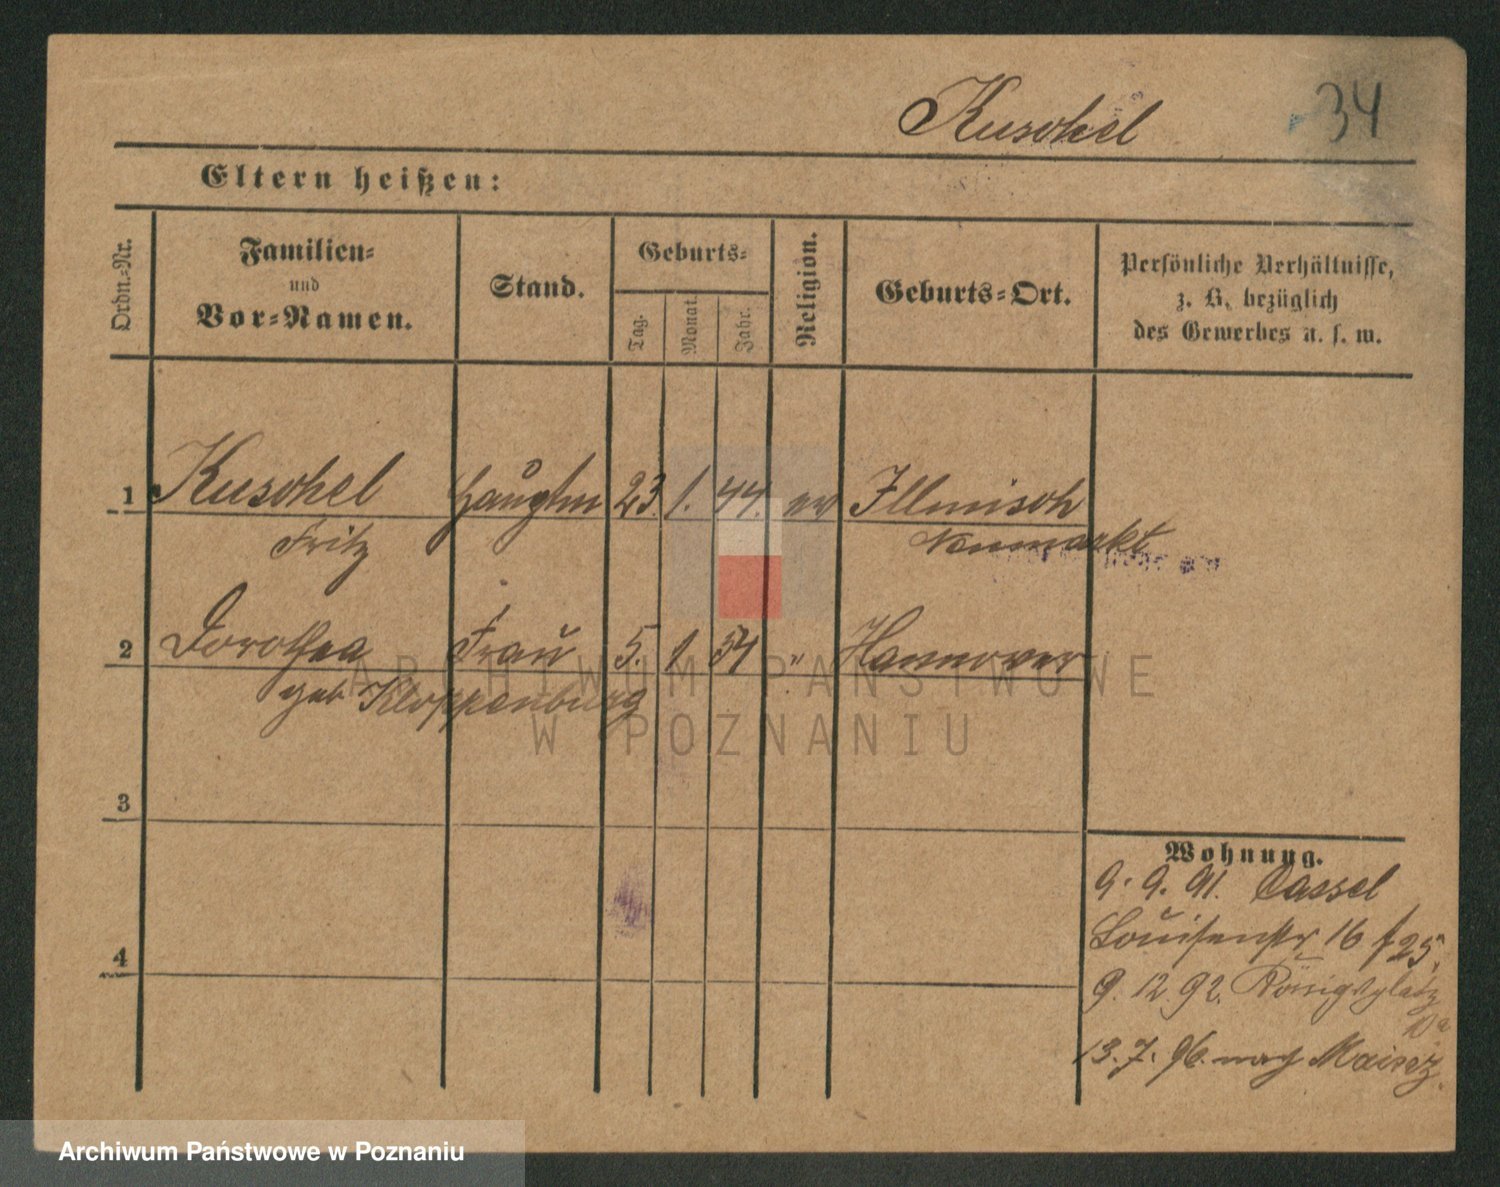 Kuschel
34
Eltern heißen:
Ordn.-Nr.
Familien-
und
Vor-Namen.
Stand.
Geburts-
Tag.
Monat.
Jahr.
Religion.
Geburts-Ort.
Persönliche Verhältnisse,
z. B. bezüglich
des Gewerbes u. s. w.
1 Kuschel 23. 1. 44. ev Illnisch
Fritz Neumarkt
2 Dorothea Frau 5. 1. 54 " Hannover
geb Kloppenburg
3
4
Wohnung.
9. 9. 91. Cassel
Louisenstr 16 f 25.
9. 12. 92. Königsplatz
10a
13. 7. 96. nach Mainz.
ARCHIWUM PAŃSTWOWE
W POZNANIU
Archiwum Państwowe w Poznaniu